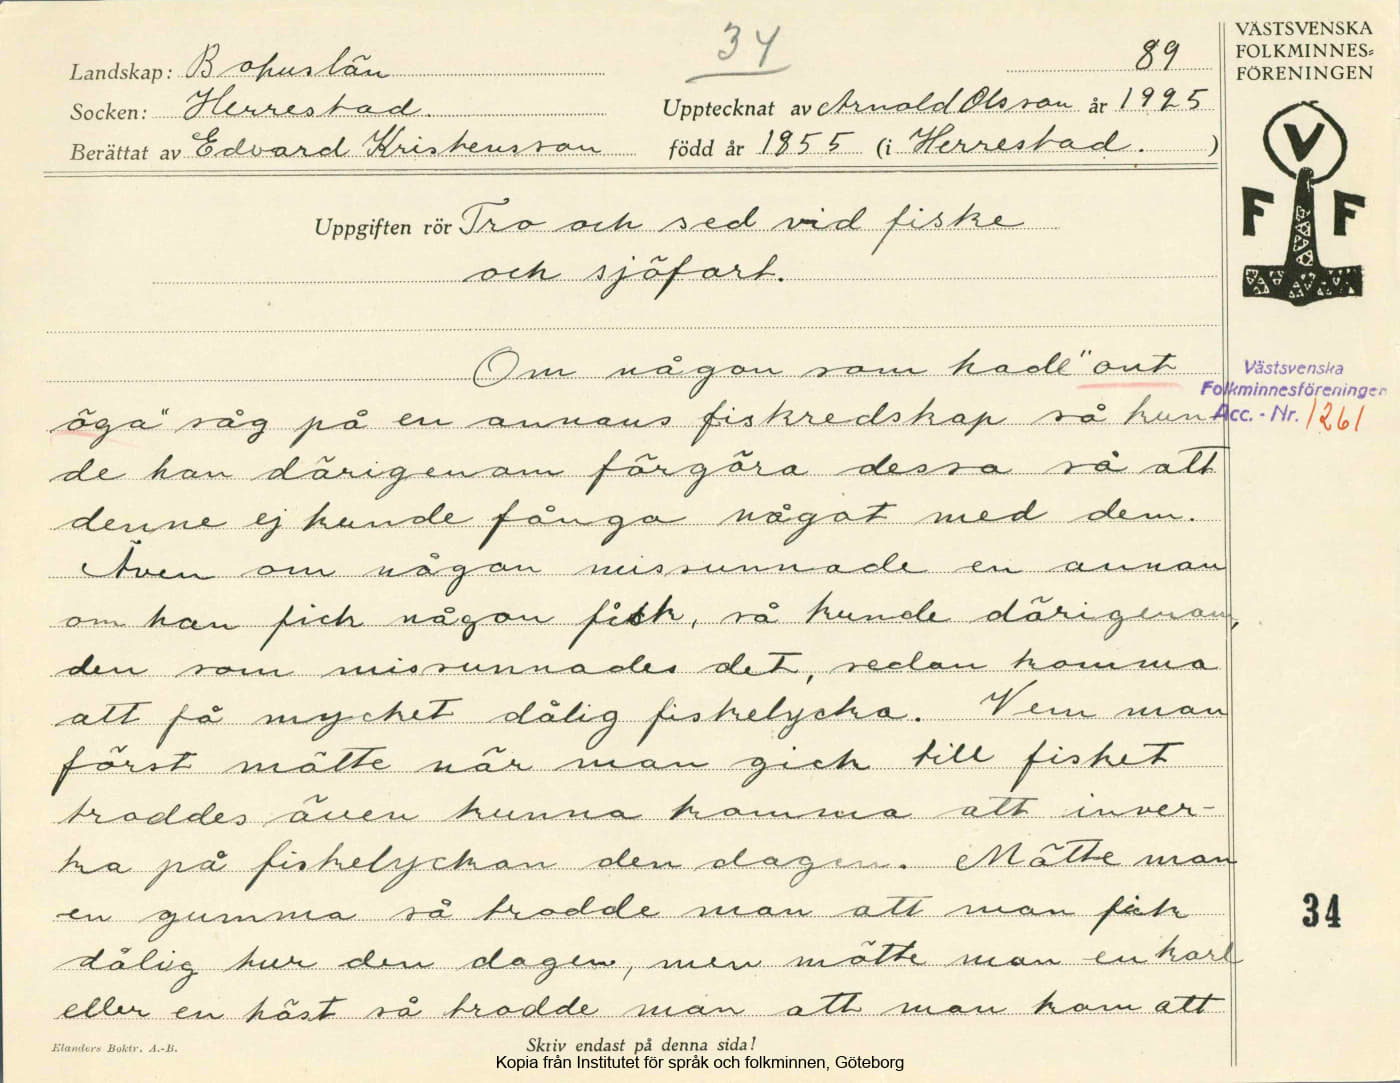 34
89
Landskap: Bohuslän
Socken: Herrestad.
Upptecknat av Arnold Olsson år 1925
Berättat av Edvard Kristensson född år 1855 (i Herrestad. )
VÄSTSVENSKA
FOLKMINNES=
FÖRENINGEN
V
F F
Uppgiften rör Tro och sed vid fiske
och sjöfart.
Om någon som hade "ont
öga" såg på en annans fiskredskap så kun
de han därigenom förgöra dessa så att
denne ej kunde fånga något med dem.
Även om någon missunnade en annan
om han fick någon fisk, så kunde därigenom,
den som missunnades det, sedan komma
att få mycket dålig fiskelycka. Vem man
först mötte när man gick till fisket
troddes även kunna komma att inver-
ka på fiskelyckan den dagen. Mötte man
en gumma så trodde man att man fick
dålig tur den dagen, men mötte man en karl
eller en häst så trodde man att man kom att
Västsvenska
Folkminnesföreningen
Acc. - Nr. 1261
34
Elanders Boktr. A.-B.
Skriv endast på denna sida!
Kopia från Institutet för språk och folkminnen, Göteborg